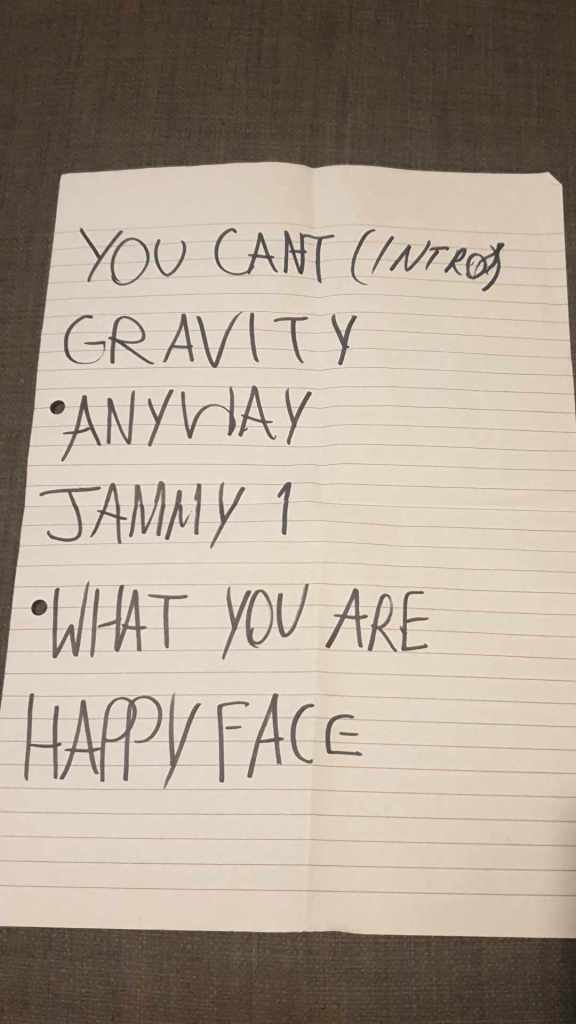 YOU CANT (INTRO)
GRAVITY
ANYWAY
JAMMY 1
WHAT YOU ARE
HAPPY FACE